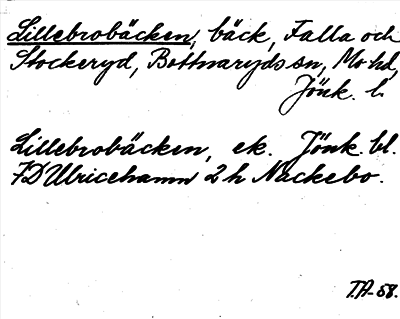 Lillebrobäcken, bäck, Falla och
Stockeryd, Bottnaryds sn, Mo hd,
Jönk. l.
Lillebrobäcken, ek. Jönk. bl.
7D Ulricehamn 2h Nackebo.
T.A-58.